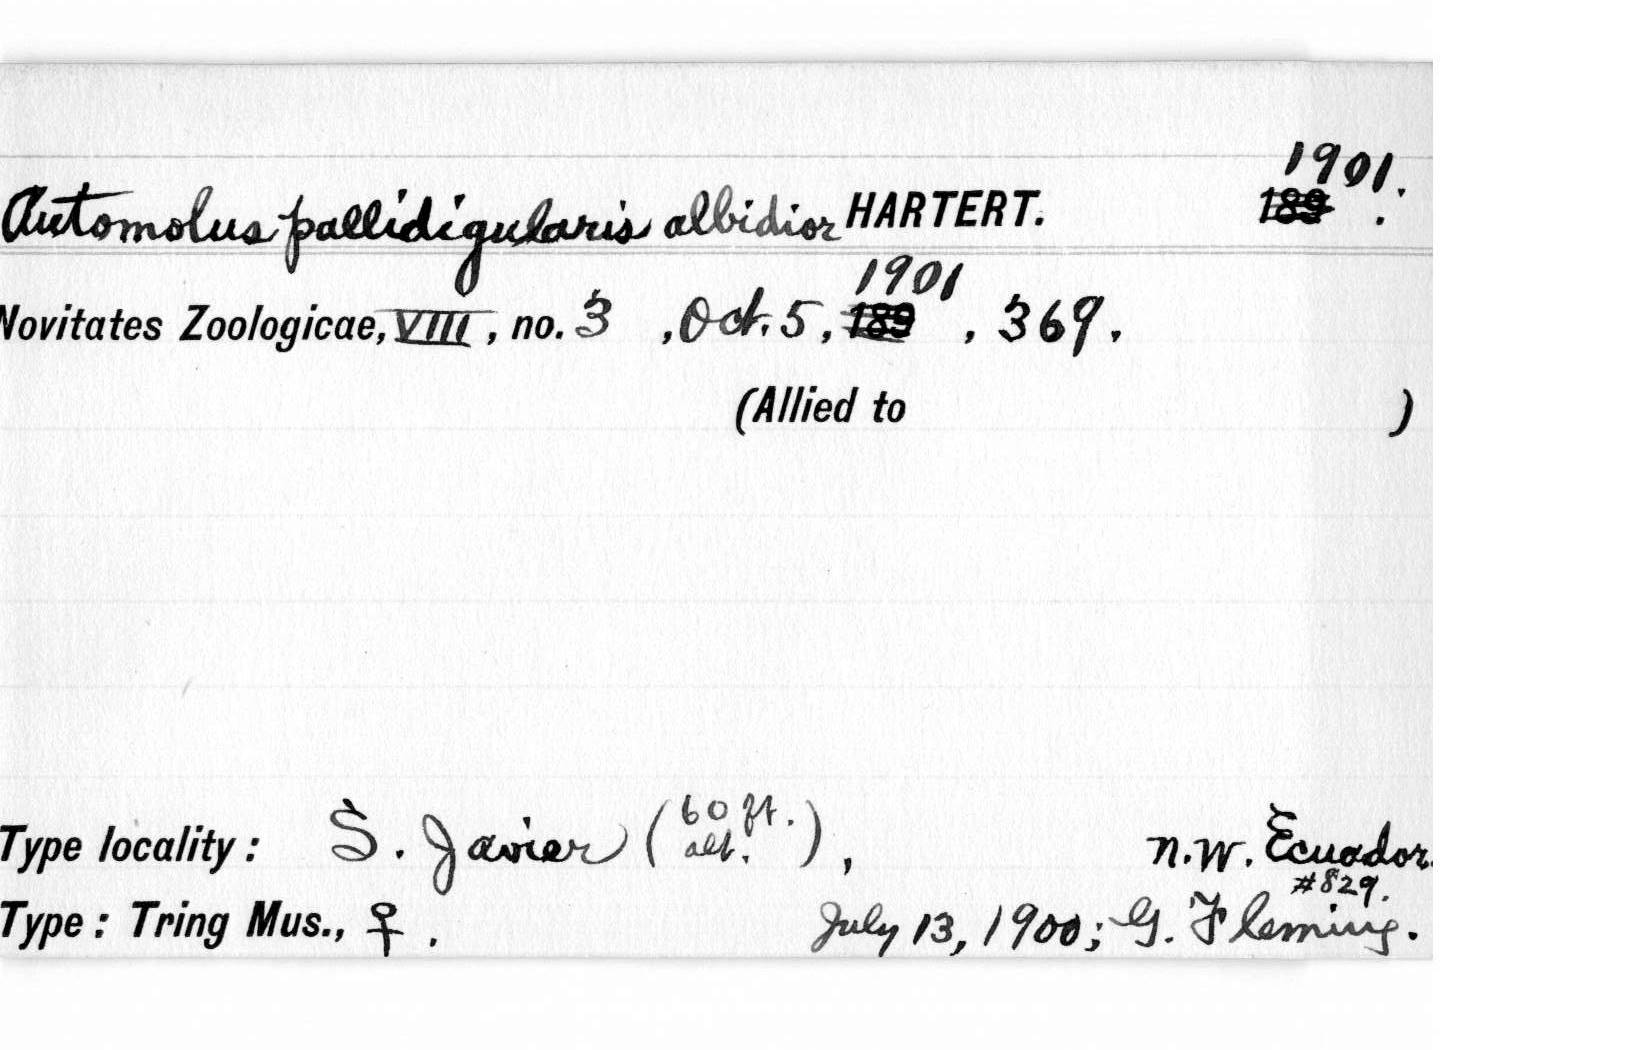 1901.
Automolus pallidigularis albidior HARTERT. 189 .
1901
Novitates Zoologicae, VIII, no. 3 , Oct. 5, 189 , 369.
(Allied to )
60 ft.
Type locality: S. Javier ( alt. ), N.W. Ecuador.
#829.
Type: Tring Mus., ♀. July 13, 1900; G. Fleming.